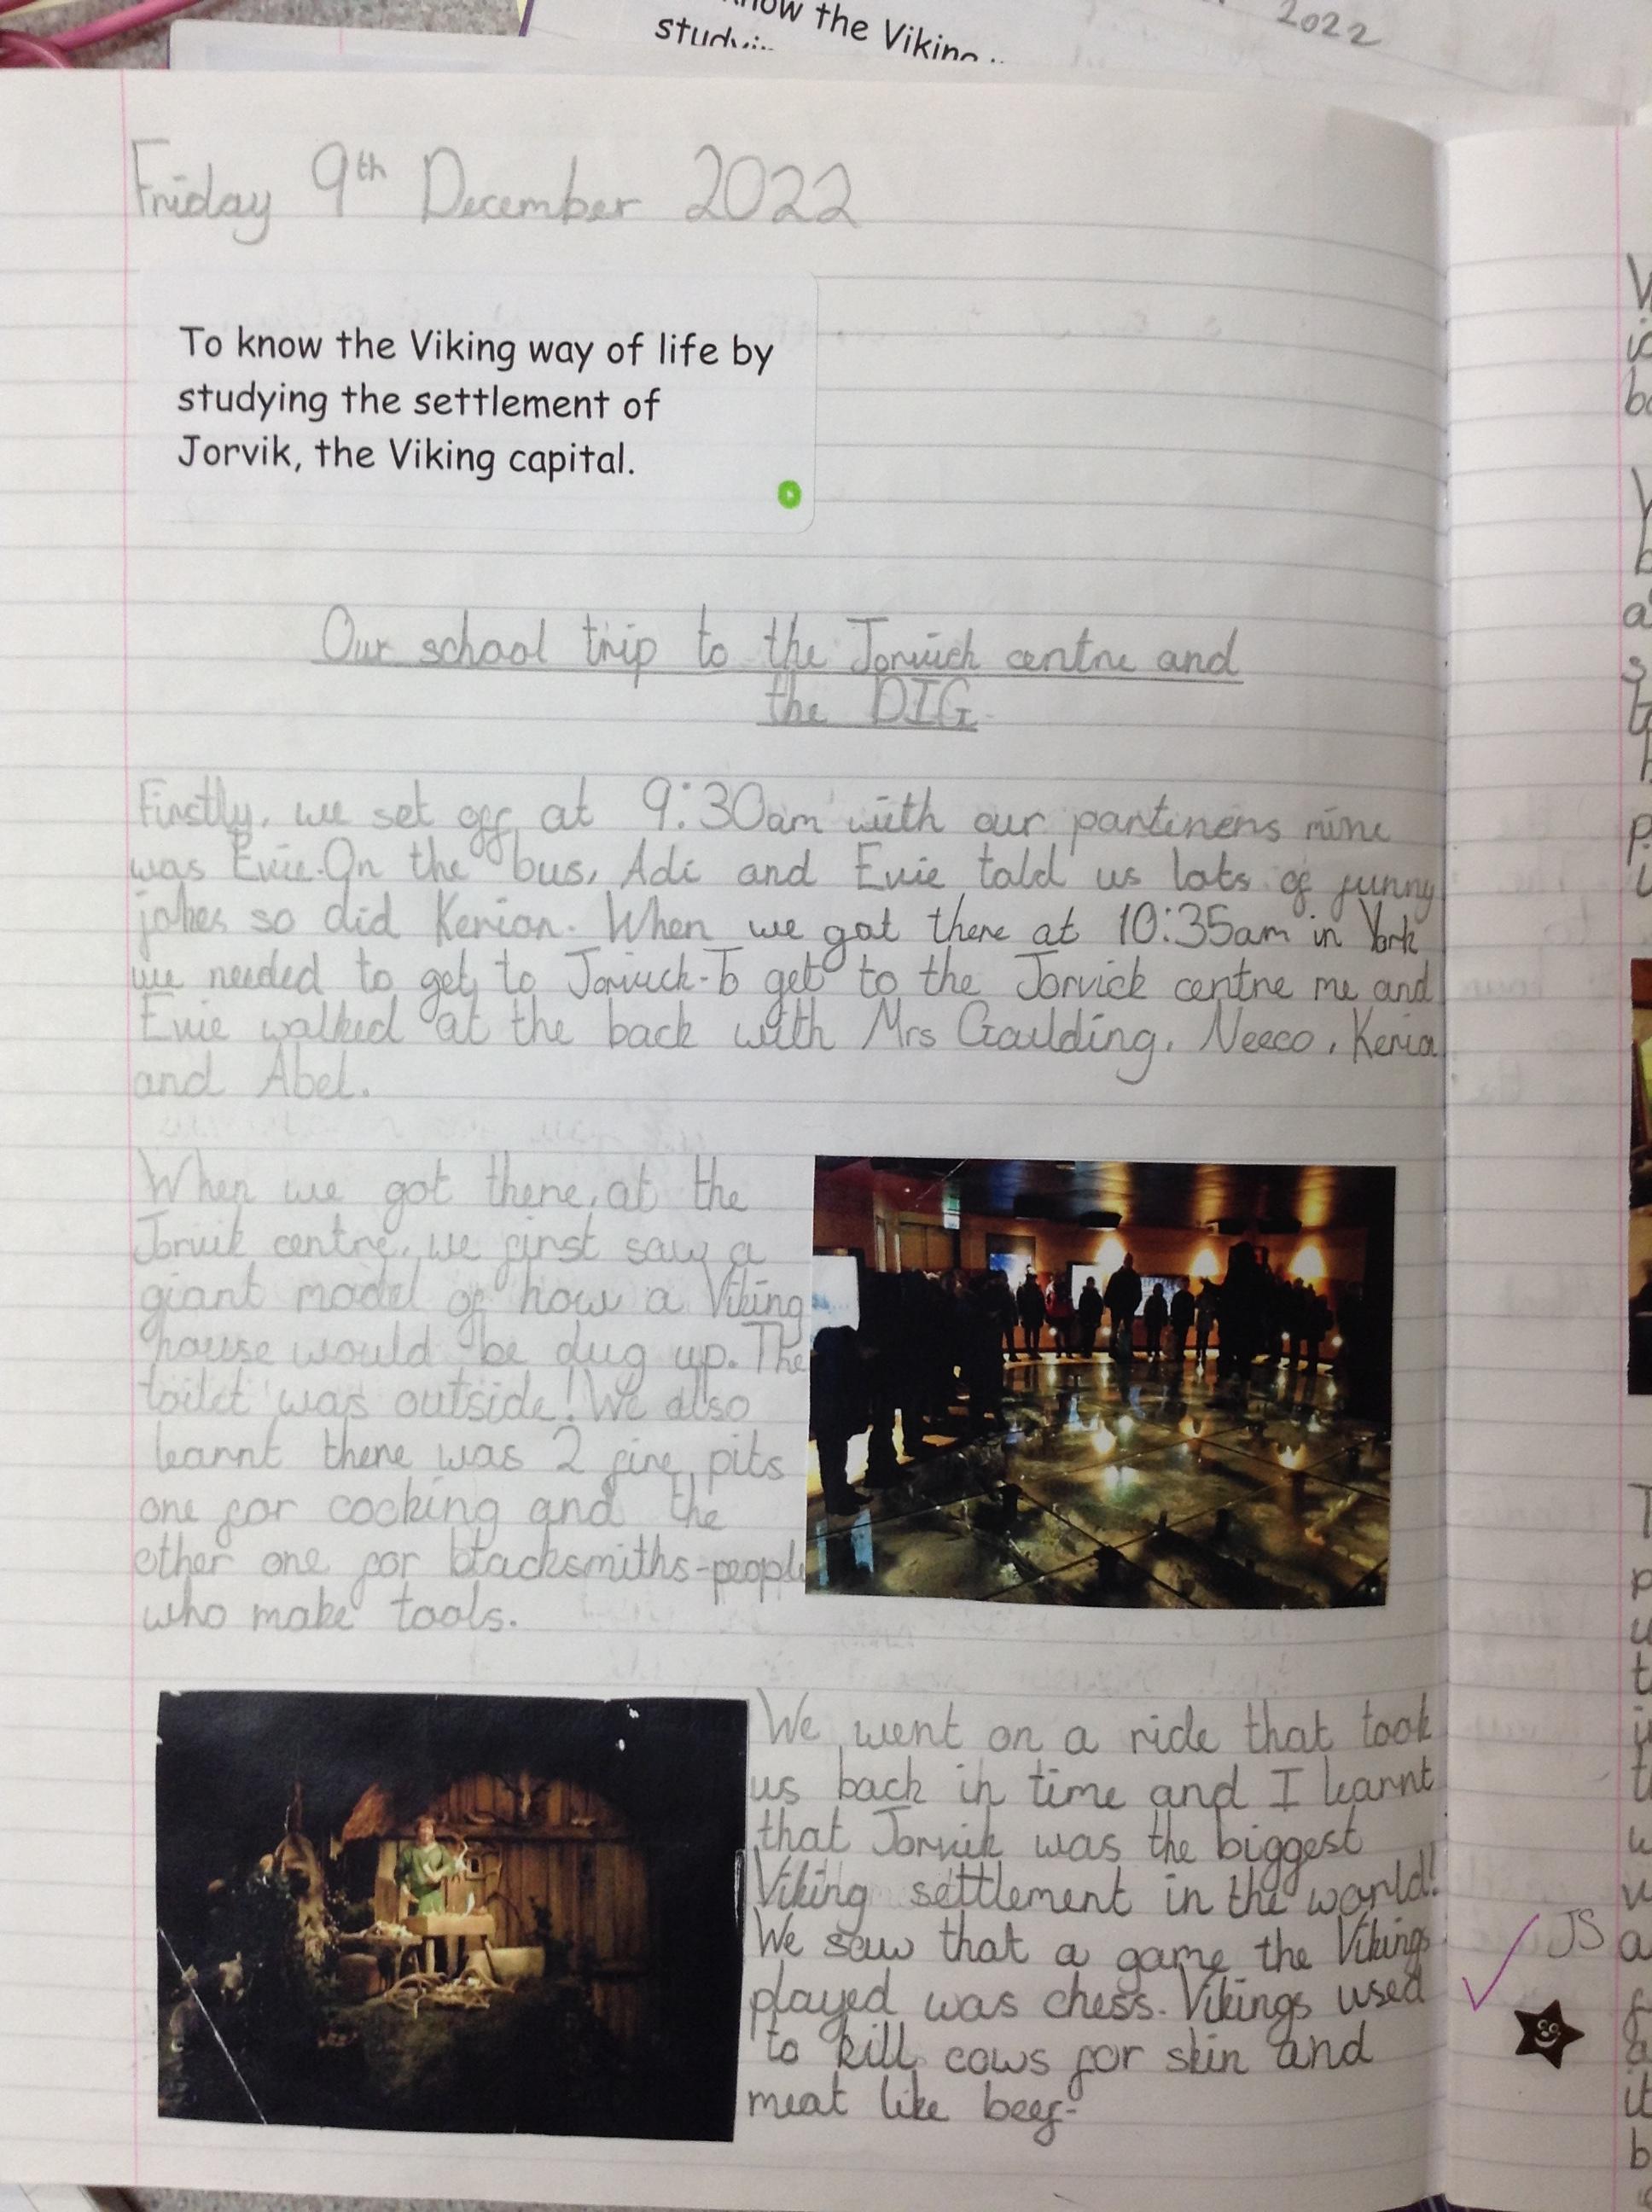 now the Viking
2022
Friday 9th December 2022
To know the Viking way of life by
studying the settlement of
Jorvik, the Viking capital.
Our school trip to the Jorvick centre and
the DIG
Firstly, we set off at 9:30am with our partners mine
was Evie. On the bus, Adi and Evie told us lots of funny
jokes so did Kerian. When we got there at 10:35am in York
we needed to get to Jorvick. To get to the Jorvick centre me and
Evie walked at the back with Mrs Goulding, Neeco, Keria
and Abel.
When we got there, at the
Jorvik centre, we first saw a
giant model of how a Viking
house would be dug up. The
toilet was outside! We also
learnt there was 2 fire pits
one for cooking and the
other one for blacksmiths-people
who make tools.
We went on a ride that took
us back in time and I learnt
that Jorvik was the biggest
Viking settlement in the world!
We saw that a game the Vikings
played was chess. Vikings used
to kill cows for skin and
meat like beef.
JS